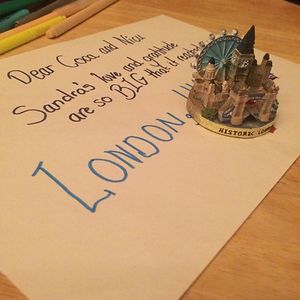 Dear Coca and Nicu
Sandra's love and gratitude
are so BIG that it reaches
LONDON
HISTORIC LON